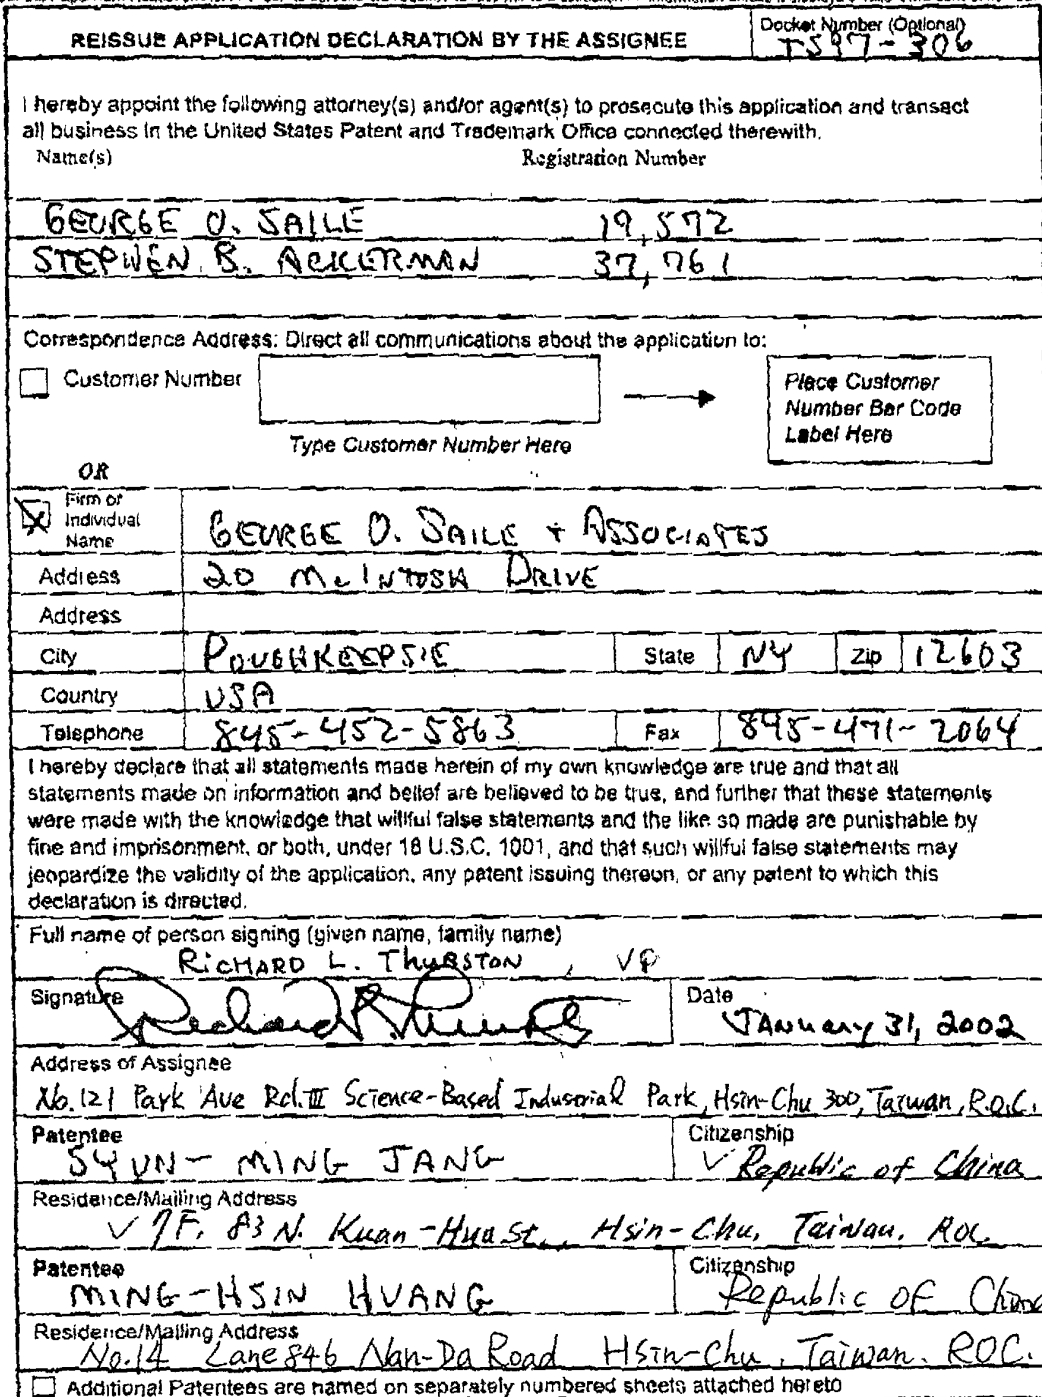 REISSUE APPLICATION DECLARATION BY THE ASSIGNEE
Docket Number (Optional)
TS97-306
I hereby appoint the following attorney(s) and/or agent(s) to prosecute this application and transact
all business in the United States Patent and Trademark Office connected therewith.
Name(s) Registration Number
GEORGE O. SAILE 19,572
STEPHEN B. ACKERMAN 37,761
Correspondence Address: Direct all communications about the application to:
Customer Number
Place Customer
Number Bar Code
Label Here
Type Customer Number Here
OR
Firm or
Individual
Name
GEORGE O. SAILE + ASSOCIATES
Address 20 McINTOSH DRIVE
Address
City POUGHKEEPSIE State NY Zip 12603
Country USA
Telephone 845-452-5863 Fax 845-471-2064
I hereby declare that all statements made herein of my own knowledge are true and that all
statements made on information and belief are believed to be true, and further that these statements
were made with the knowledge that willful false statements and the like so made are punishable by
fine and imprisonment, or both, under 18 U.S.C. 1001, and that such willful false statements may
jeopardize the validity of the application, any patent issuing thereon, or any patent to which this
declaration is directed.
Full name of person signing (given name, family name)
RICHARD L. THURSTON, VP
Signature
Date
JANUARY 31, 2002
Address of Assignee
No. 121 Park Ave Rd. III Science-Based Indusorial Park, Hsin-Chu 300, Taiwan, R.O.C.
Patentee
SYUN-MING JANG
Citizenship
Republic of China
Residence/Mailing Address
7F, 83 N. Kuan-Hua St., Hsin-Chu, Taiwan, ROC
Patentee
MING-HSIN HUANG
Citizenship
Republic OF China
Residence/Mailing Address
No.14 Lane 846 Nan-Da Road Hsin-Chu, Taiwan. ROC.
Additional Patentees are named on separately numbered sheets attached hereto